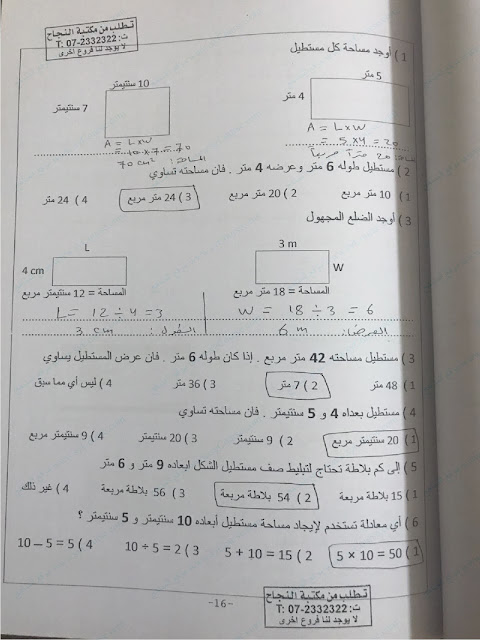 تطلب من مكتبة النجاح
ت: 07-2332322 :T
لا يوجد لنا فروع اخرى
1 ) أوجد مساحة كل مستطيل
5 متر
10 سنتيمتر
4 متر
7 سنتيمتر
A = L x W
= 5 x 4 = 20
المساحة: 20 متراً مربعاً
A = L x W
= 10 x 7 = 70
المساحة: 70 cm²
2 ) مستطيل طوله 6 متر وعرضه 4 متر . فان مساحته تساوي
1 ) 10 متر مربع 2 ) 20 متر مربع 3 ) 24 متر مربع 4 ) 24 متر
3 ) أوجد الضلع المجهول
3 m
L
W
4 cm
المساحة = 18 متر مربع
المساحة = 12 سنتيمتر مربع
W = 18 ÷ 3 = 6
L = 12 ÷ 4 = 3
العرض: 6 m
الطول: 3 cm
3 ) مستطيل مساحته 42 متر مربع . إذا كان طوله 6 متر . فان عرض المستطيل يساوي
1 ) 48 متر 2 ) 7 متر 3 ) 36 متر 4 ) ليس أي مما سبق
4 ) مستطيل بعداه 4 و 5 سنتيمتر . فان مساحته تساوي
1 ) 20 سنتيمتر مربع 2 ) 9 سنتيمتر 3 ) 20 سنتيمتر 4 ) 9 سنتيمتر مربع
5 ) إلى كم بلاطة تحتاج لتبليط صف مستطيل الشكل ابعاده 9 متر و 6 متر
1 ) 15 بلاطة مربعة 2 ) 54 بلاطة مربعة 3 ) 56 بلاطة مربعة 4 ) غير ذلك
6 ) أي معادلة تستخدم لإيجاد مساحة مستطيل أبعاده 10 سنتيمتر و 5 سنتيمتر ؟
1 ) 5 × 10 = 50 2 ) 5 + 10 = 15 3 ) 10 ÷ 5 = 2 4 ) 10 – 5 = 5
-16-
تطلب من مكتبة النجاح
ت: 07-2332322 :T
لا يوجد لنا فروع اخرى